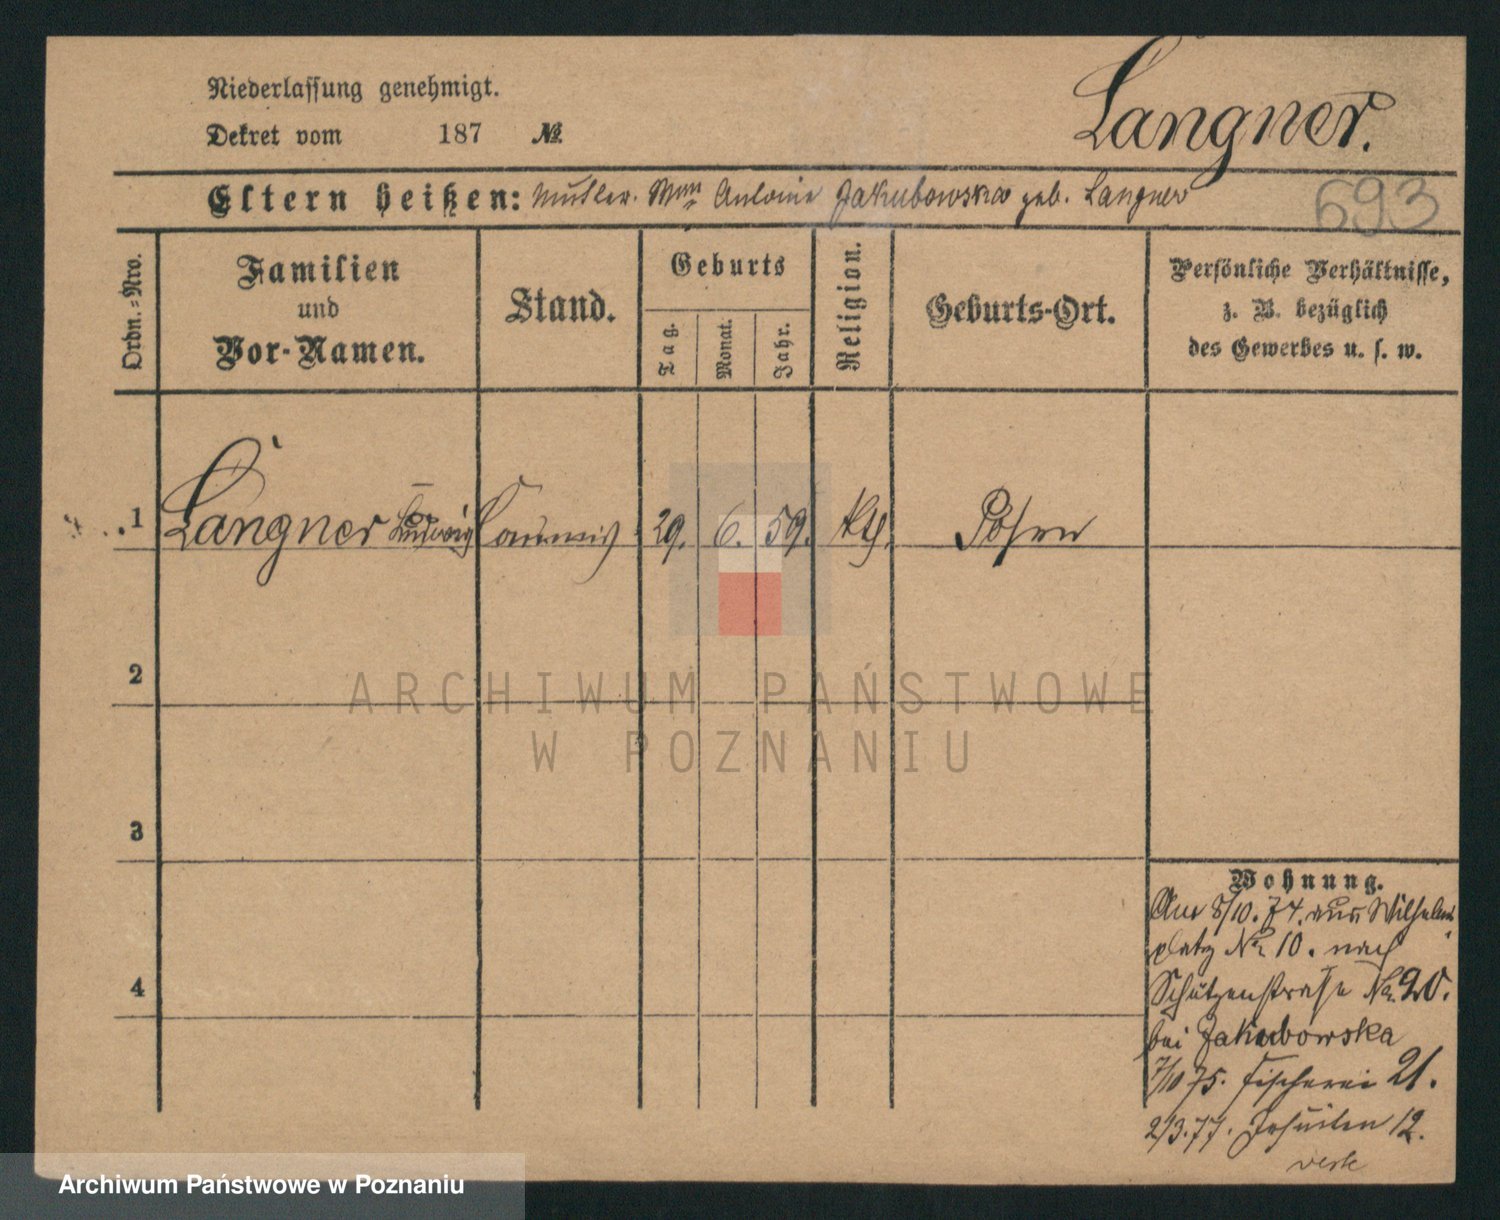 Niederlassung genehmigt.
Dekret vom 187 №
Langner.
Eltern heißen: Mutter. Antonie Jakubowska geb. Langner
693
Ordn.=Nro.
Familien
und
Vor-Namen.
Stand.
Geburts
Tag.
Monat.
Jahr.
Religion.
Geburts-Ort.
Persönliche Verhältnisse,
z. B. bezüglich
des Gewerbes u. s. w.
1 Langner Ludwig Commis 29. 6. 59. kth. Posen
2
ARCHIWUM PAŃSTWOWE
W POZNANIU
3
4
Wohnung.
Am 8/10. 74. aus Wilhelms
platz No 10. nach
Schützenstraße No. 20.
bei Jakubowska
7/10 75. Fischerei 21.
2/3. 77. Jesuiten 12.
Archiwum Państwowe w Poznaniu